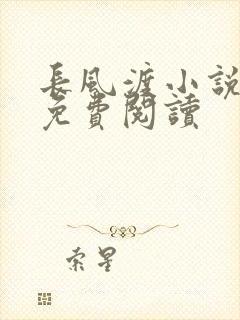 長風渡小說
免費閱讀
索星